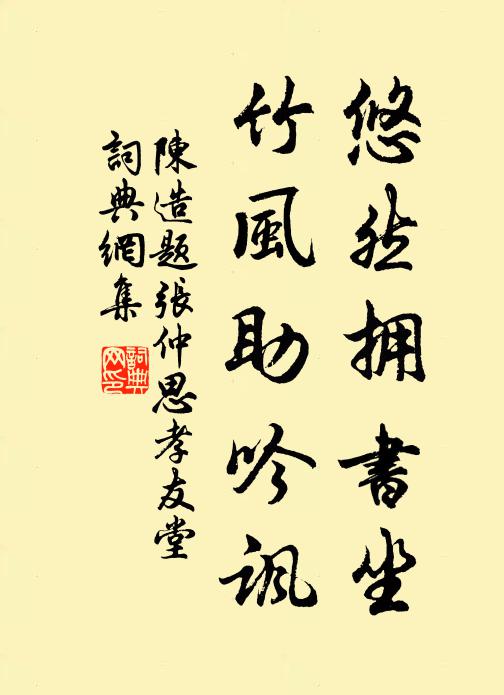 悠然拥書坐
竹風助吟諷
陳造题張仲思孝友堂
詞典網集
詞典网印